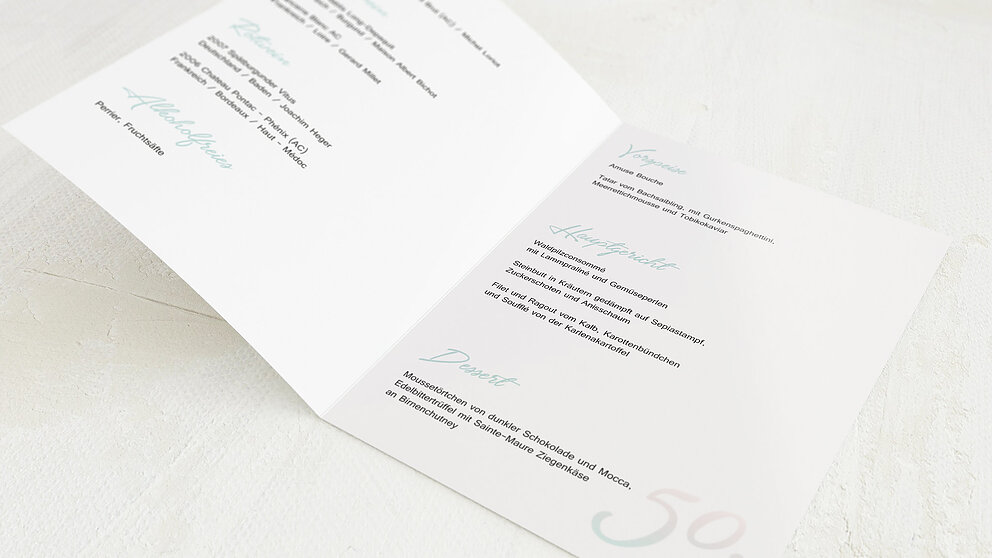 Lang-Depaquit
/ Burgund / Maison Albert Bichot
Blanc AC
Frankreich / Loire / Gerard Millet
Rotwein
2007 Spätburgunder Vitus
Deutschland / Baden / Joachim Heger
2006 Chateau Pontac - Phénix (AC)
Frankreich / Bordeaux / Haut - Médoc
Alkoholfreies
Perrier, Fruchtsäfte
Vorspeise
Amuse Bouche
Tatar vom Bachsaibling, mit Gurkenspaghettini,
Meerrettichmousse und Tobikokaviar
Hauptgericht
Waldpilzconsommé
mit Lammpraliné und Gemüseperlen
Steinbutt in Kräutern gedämpft auf Sepiastampf,
Zuckerschoten und Anisschaum
Filet und Ragout vom Kalb, Karottenbündchen
und Soufflé von der Karlenakartoffel
Dessert
Moussetörtchen von dunkler Schokolade und Mocca,
Edelbittertrüffel mit Sainte-Maure Ziegenkäse
an Birnenchutney
50.